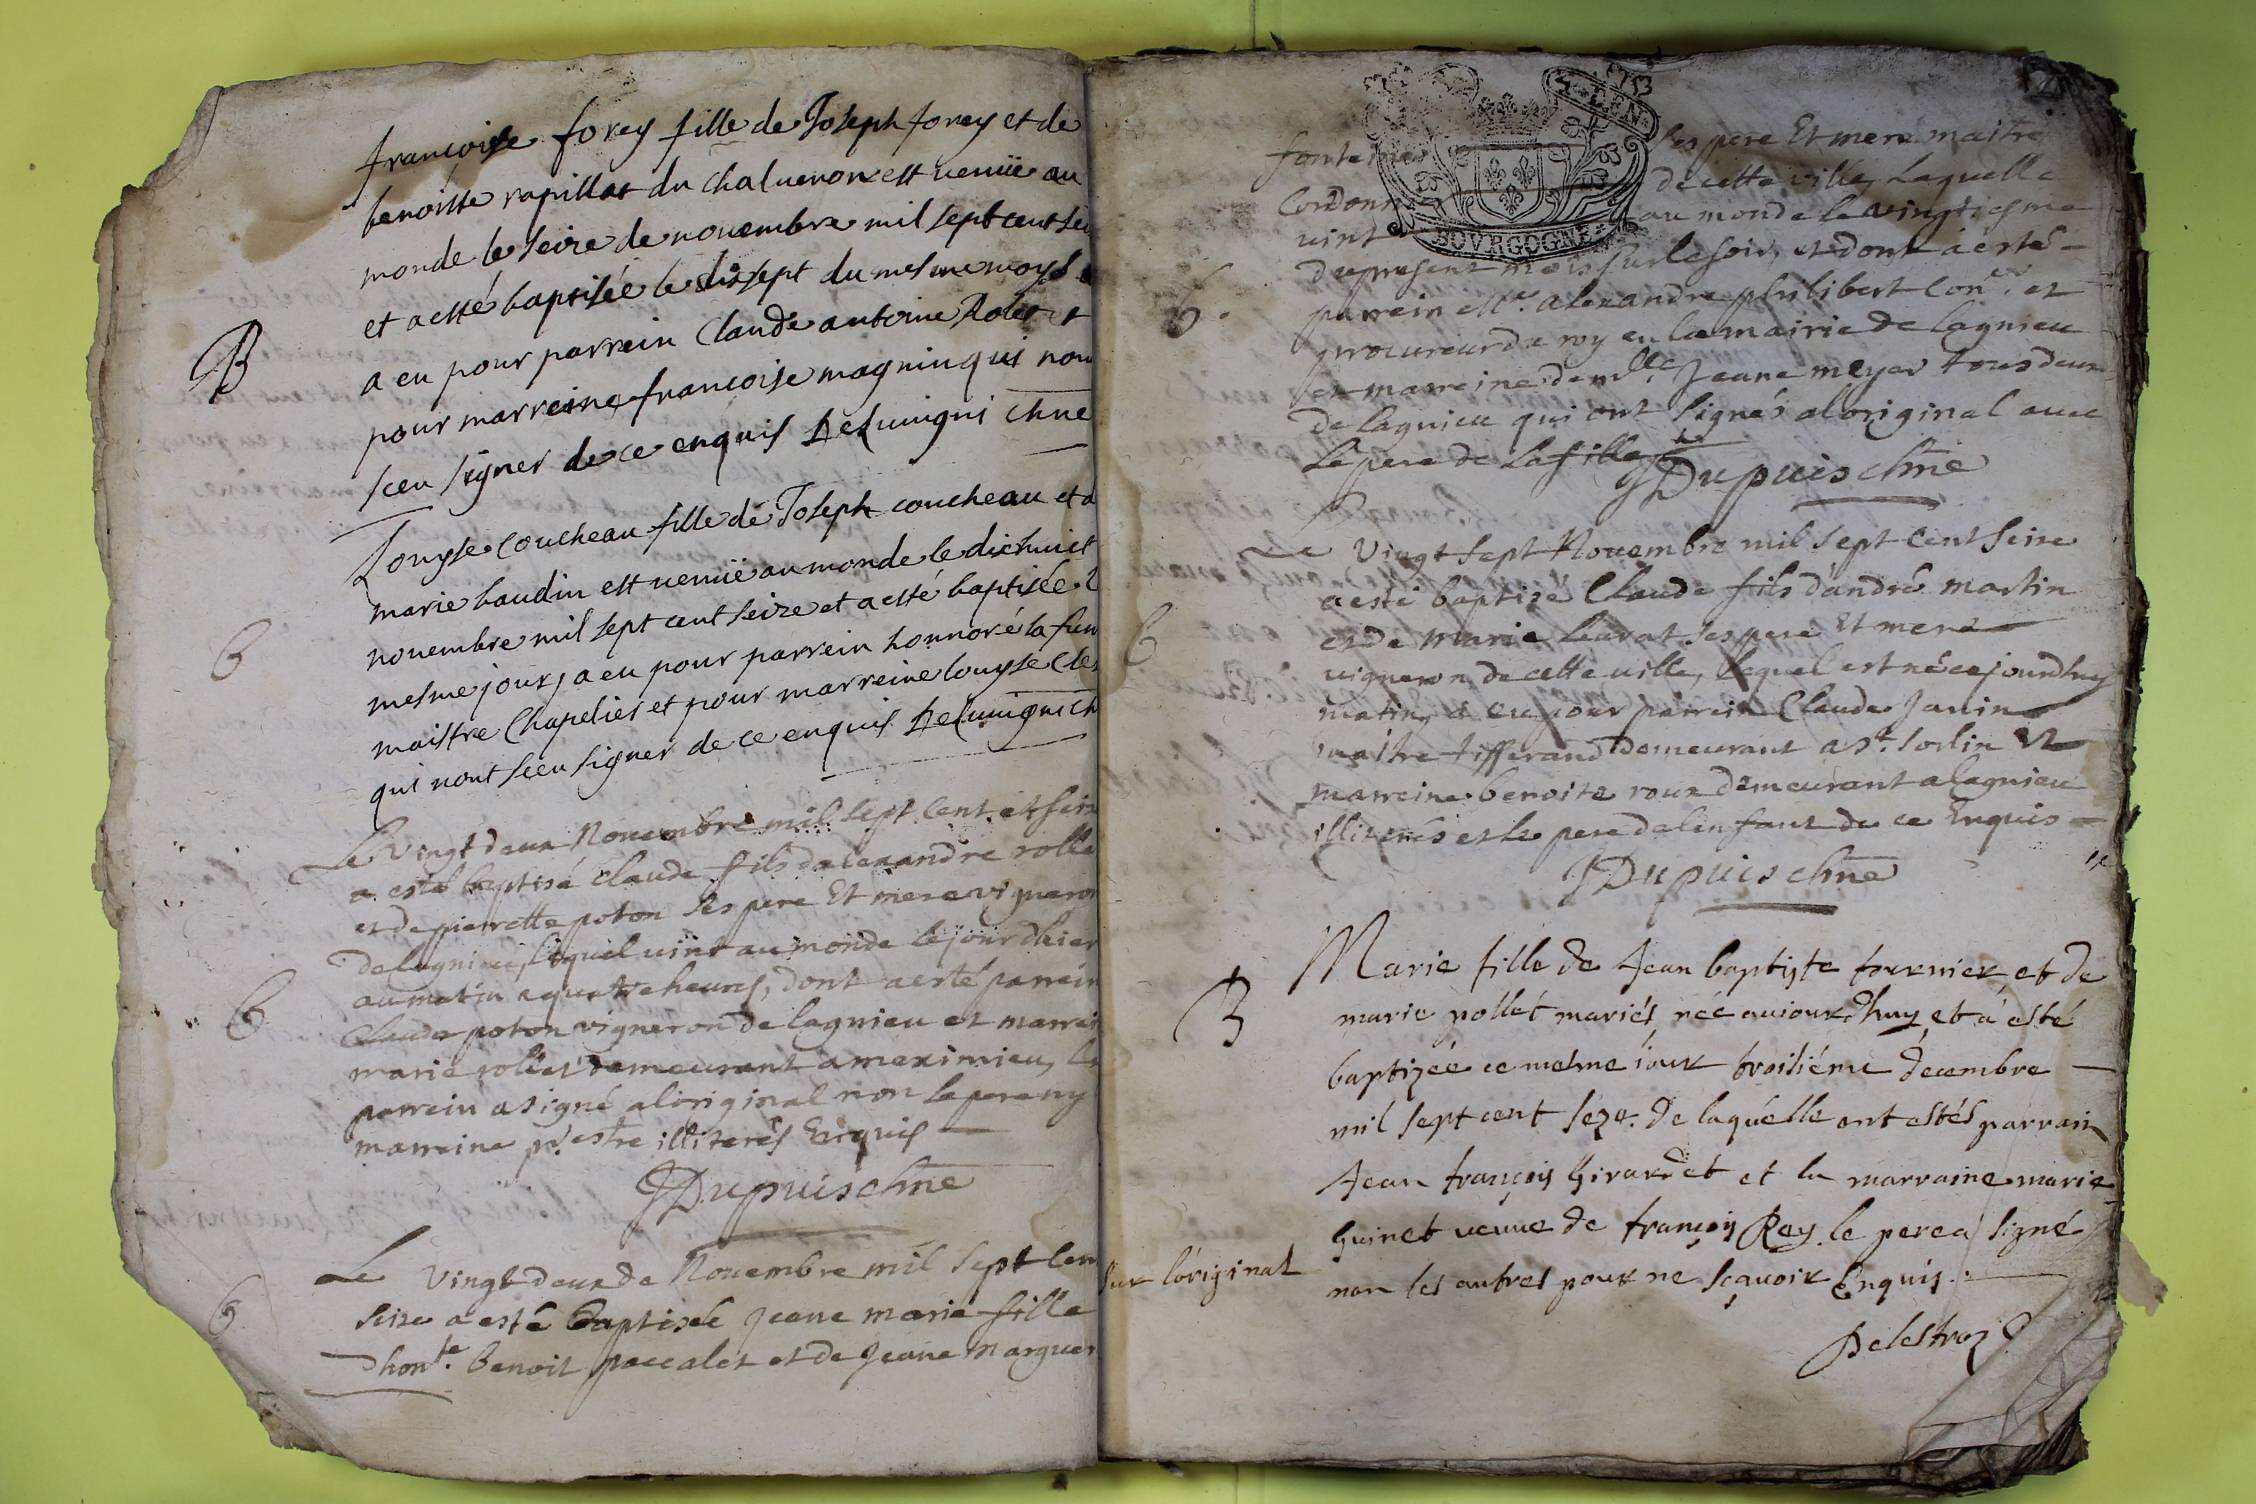 françoise forey fille de Joseph forey et de
benoiste rapillat du chaluenon est venüe au
monde le seize de novembre mil sept cent sei
et a esté baptisée le dissept du mesme moys
B
a eu pour parrein Claude antoine Rolet
pour marreine francoise magnin qui nont
sceu signer de ce enquis chne
Louyse coucheau fille de Joseph coucheau et d
marie baudin est venüe au monde le dichuict
novembre mil sept cent seize et a esté baptisée
B
mesme jour, a eu pour parrein honnoré la
maistre Chapelier et pour marreine louyse
qui nont sceu signer de ce enquis
Le Vingt deux Novembre mil sept Cent et seiz
a esté baptisé Claude fils dalexandre rolle
et de pierrette poton ses pere Et mere vigneron
de lagnieu, lequel vint au monde le jour dhier
au matin a quatre heures, dont a esté parrein
B
Claude poton vigneron de lagnieu et marrei
marie rollet demeurant a meximieu, le
parrein a signé a loriginal non le pere ny
marreine pr estre illiterés Enquis
JDupuis chne
Le Vingt deux de Novembre mil sept cen
B
seize a esté Baptisée Jeane marie fille
dhonte. benoit paccalet et de Jeane Marguer
BOVRGOGNE
ses pere Et mere maitre
Cordonn de cette ville, Laquelle
vint au monde le vingtiesme
du present mois sur le soir, et dont a esté
B.
parrein Mre. alexandre philibert Conr. et
procureur du roy en la mairie de lagnieu
et marreine demlle Jeane meyer tous deux
de lagnieu qui ont signés a loriginal avec
Le pere de la fille
JDupuis chne
Le Vingt sept Novembre mil sept Cent seize
a esté baptizé Claude fils d'andré martin
et de Marie leurat ses pere Et mere
B
vigneron de cette ville, lequel est né cejourdhuy
matin, a eu pour parrein Claude Janin
maitre tisserand demeurant a St. sorlin Et
marreine benoite roux demeurant a lagnieu
illiterés et le pere de lenfant de ce Enquis
JDupuis chne
Marie fille de Jean baptiste fournier et de
B
marie pollet mariés née aujourdhuy et a esté
baptizée ce mesme iour troisiéme decembre
mil sept cent seze. de laquelle ont estés parrain
Jean françois Girardet et la marraine marie
Guinet veuve de françois Rey. le pere a signé
sur l'original
non les autres pour ne sçavoir Enquis.
Delestraz